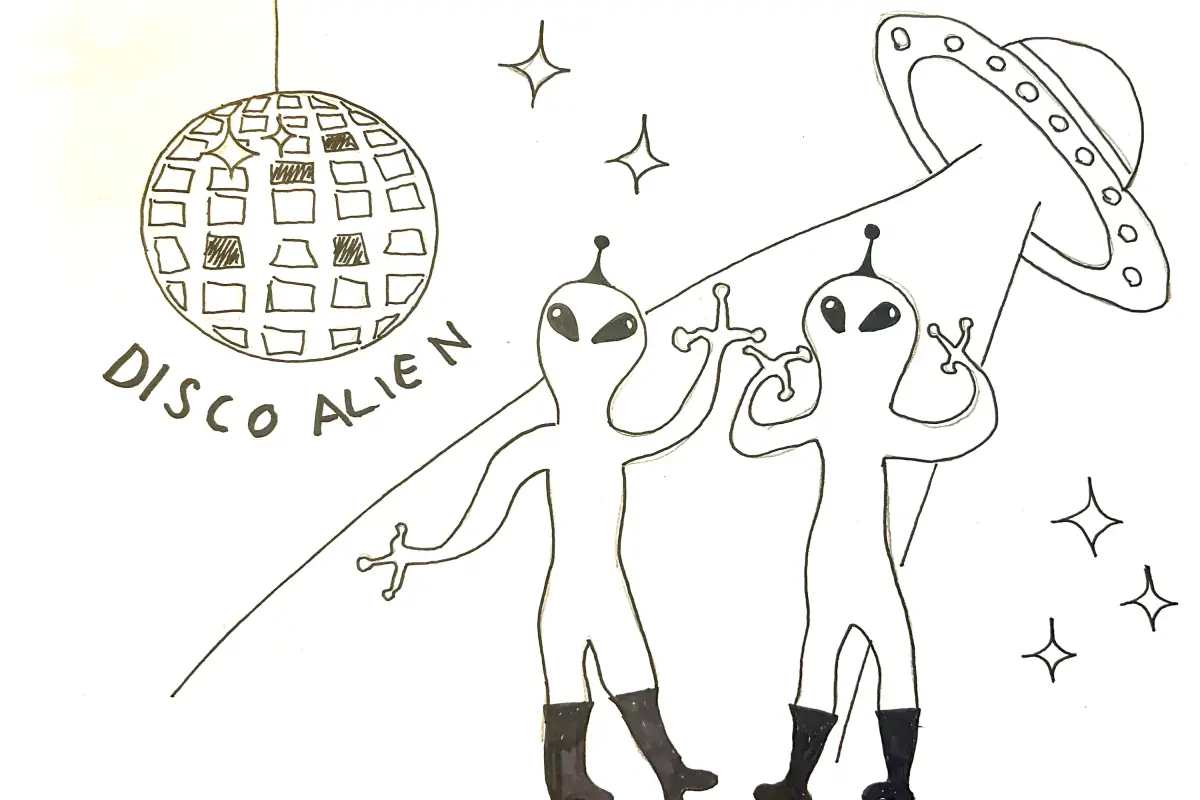 DISCO ALIEN